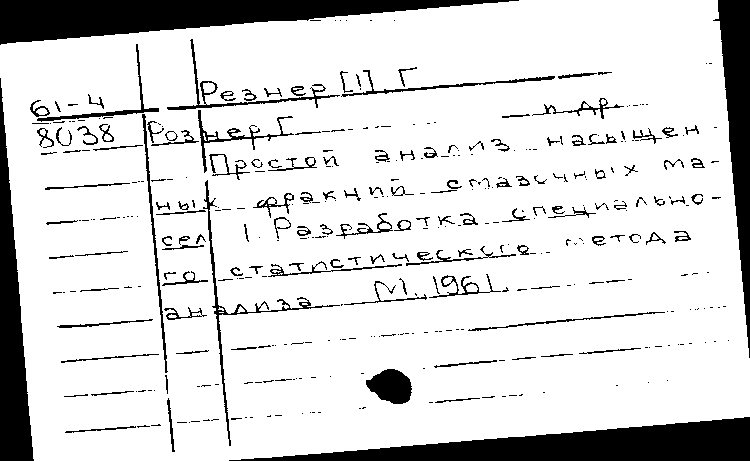 61-4 Резнер [1], Г
8038 Рознер, Г. и др.
Простой анализ насыщен
ных фракций смазочных ма-
сел 1. Разработка специально-
го статистического метода
анализа М., 1961.